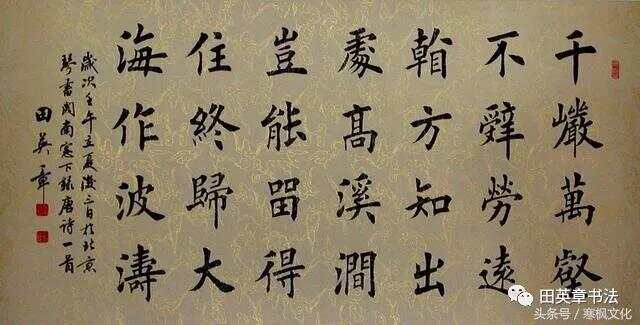 千巖萬壑
不辭勞遠
看方知出
處髙溪澗
豈能留得
住終歸大
海作波濤
歲次壬午立夏後三日於北京
琴書閣南窓下錄唐詩一首
田英章
田英章书法
头条号／寒枫文化